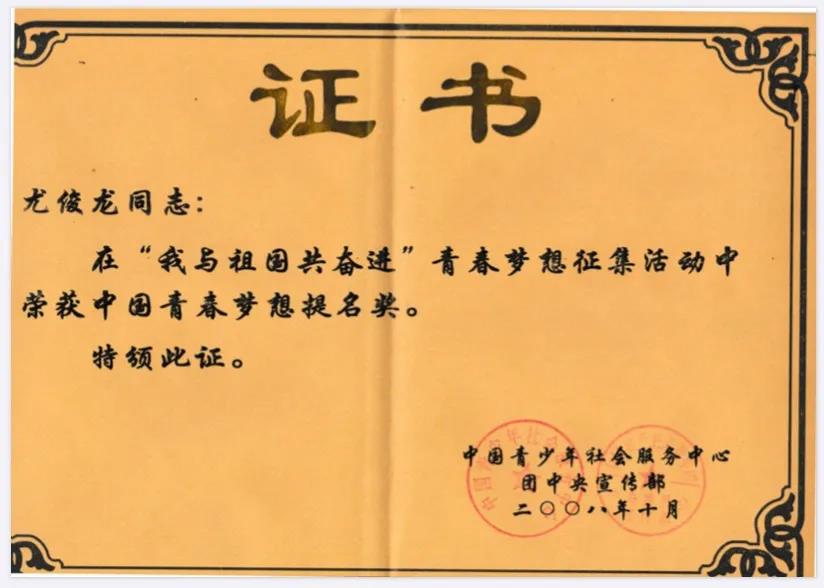 证书
尤俊龙同志:
在“我与祖国共奋进”青春梦想征集活动中
荣获中国青春梦想提名奖。
特颁此证。
中国青少年社会服务中心
团中央宣传部
二〇〇八年十月